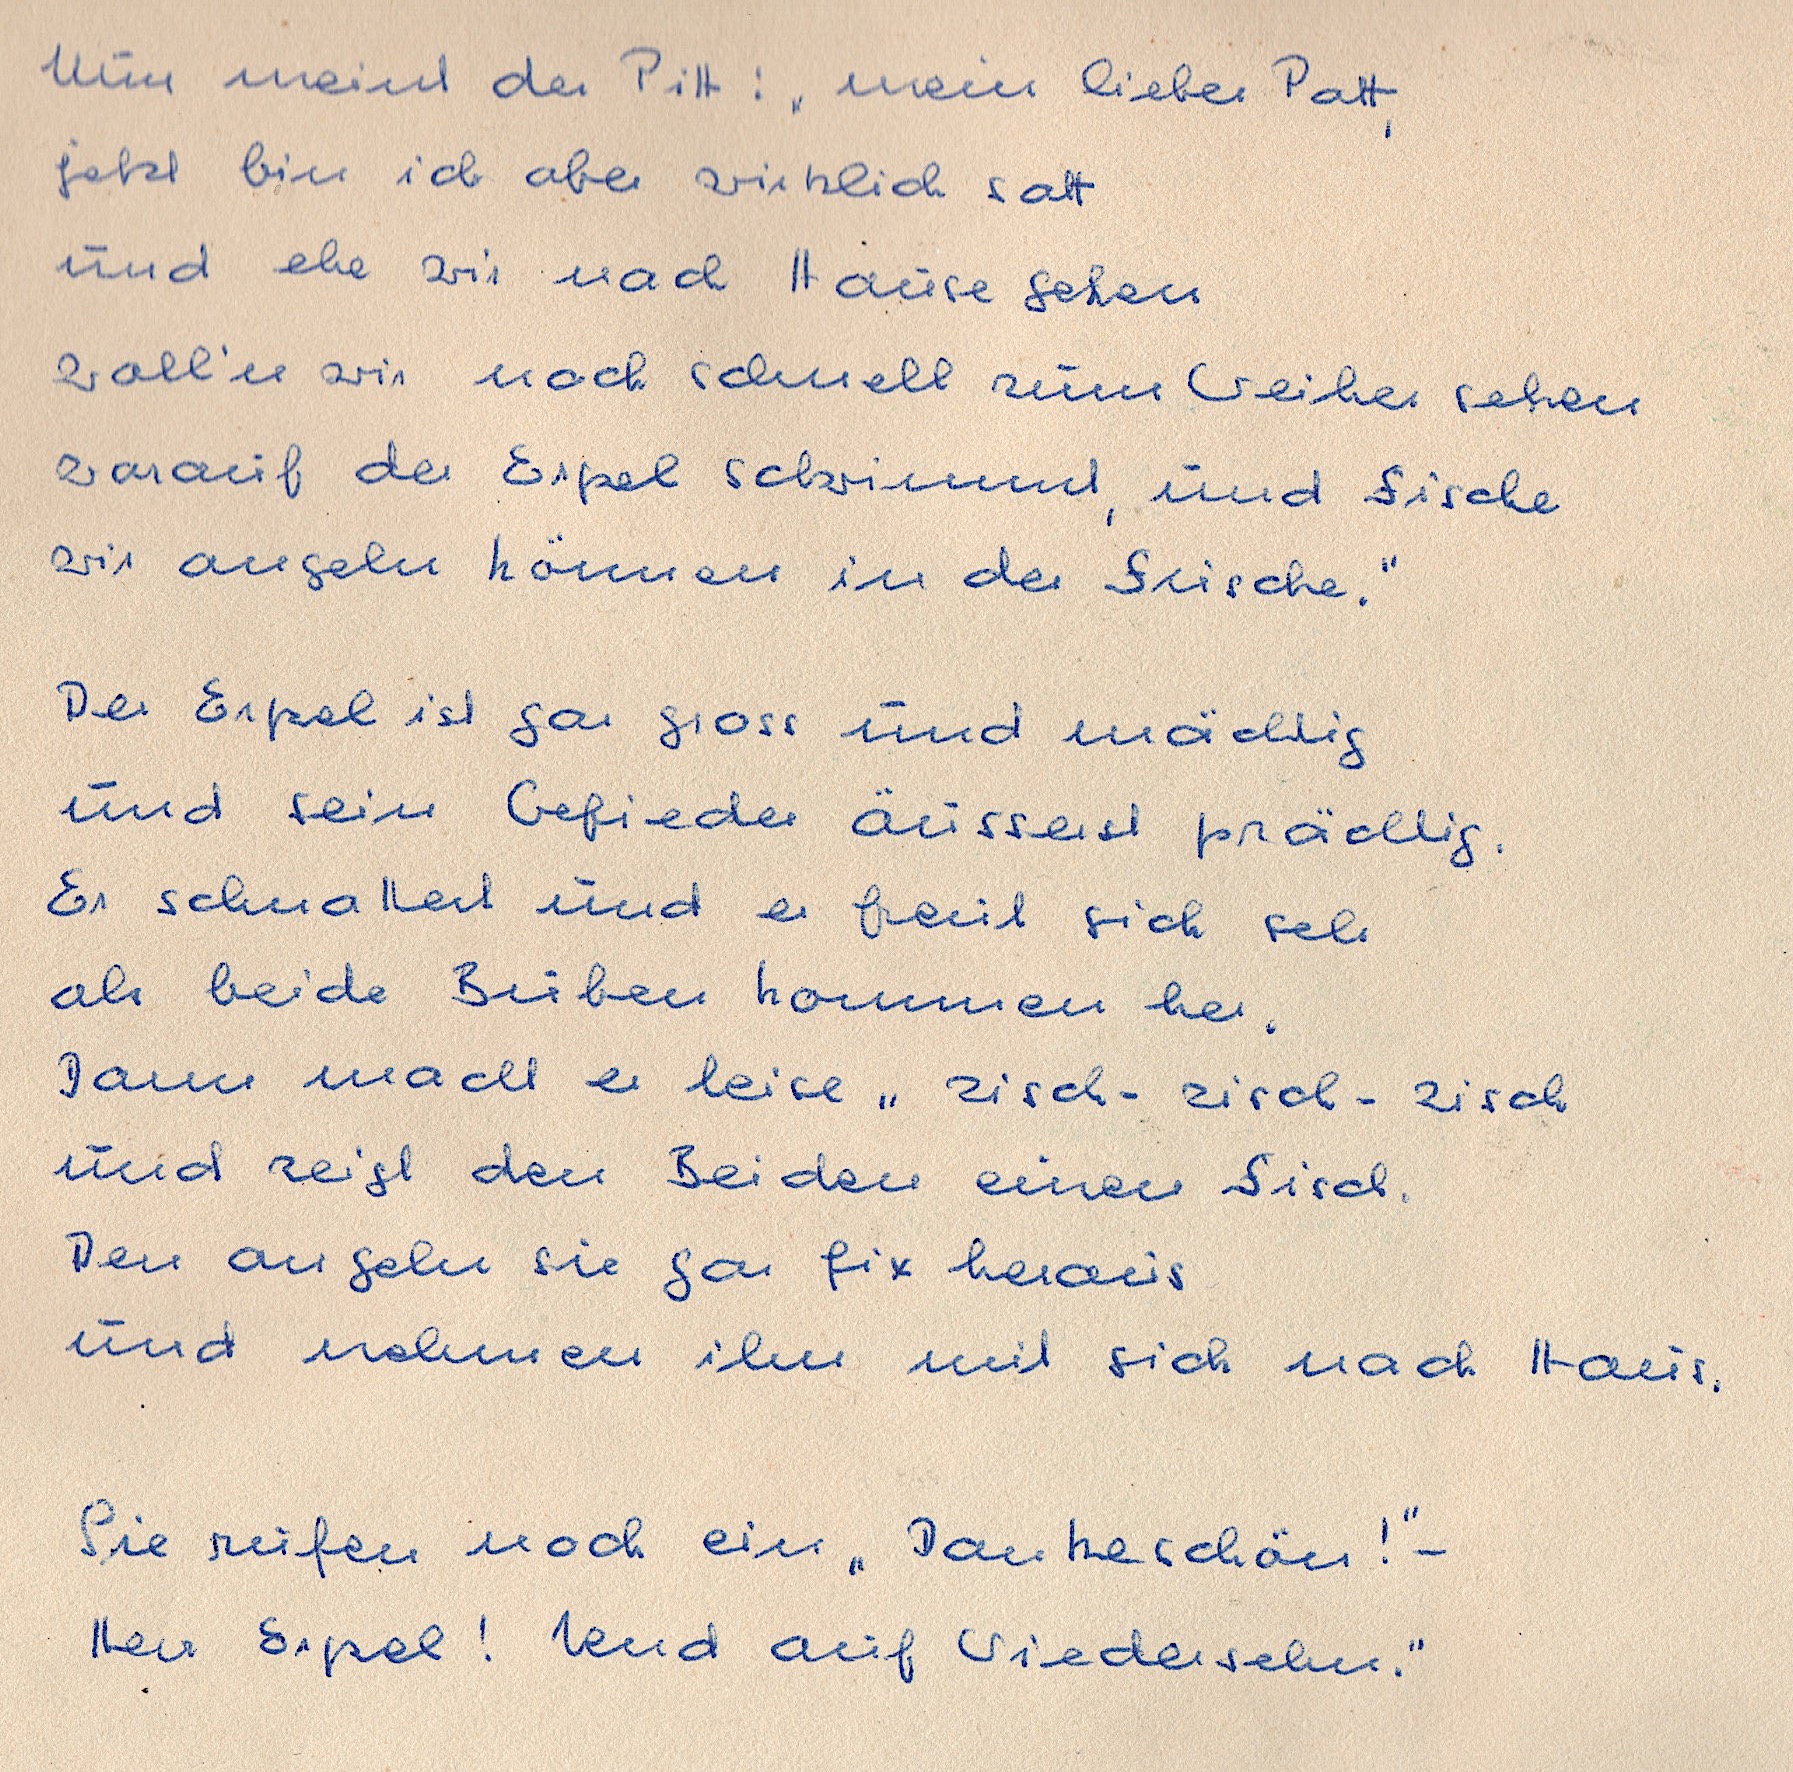 Nun meint der Pitt: „mein lieber Patt,
jetzt bin ich aber wirklich satt
und ehe wir nach Hause gehen
woll'n wir noch schnell zum Weiher sehen
worauf der Erpel schwimmt, und Fische
wir angeln können in der Frische."
Der Erpel ist gar gross und mächtig
und sein Gefieder äusserst prächtig.
Er schnattert und er freut sich sehr
als beide Buben kommen her.
Dann macht er leise „zisch - zisch - zisch
und zeigt den Beiden einen Fisch.
Den angeln sie gar fix heraus
und nehmen ihn mit sich nach Haus.
Sie rufen noch ein „Dankeschön!" –
Herr Erpel! Und auf Wiedersehn."